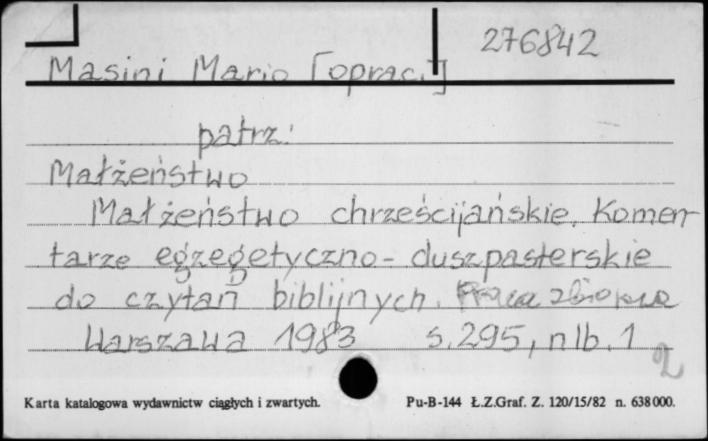 276842
Masini Mario [oprac.]
patrz:
Małżeństwo
Małżeństwo chrześcijańskie. Komen
tarze egzegetyczno-duszpasterskie
do czytań biblijnych. Praca zbiorowa
Warszawa 1983 s.295, nlb. 1
2
Karta katalogowa wydawnictw ciągłych i zwartych. Pu-B-144 Ł.Z.Graf. Z. 120/15/82 n. 638000.